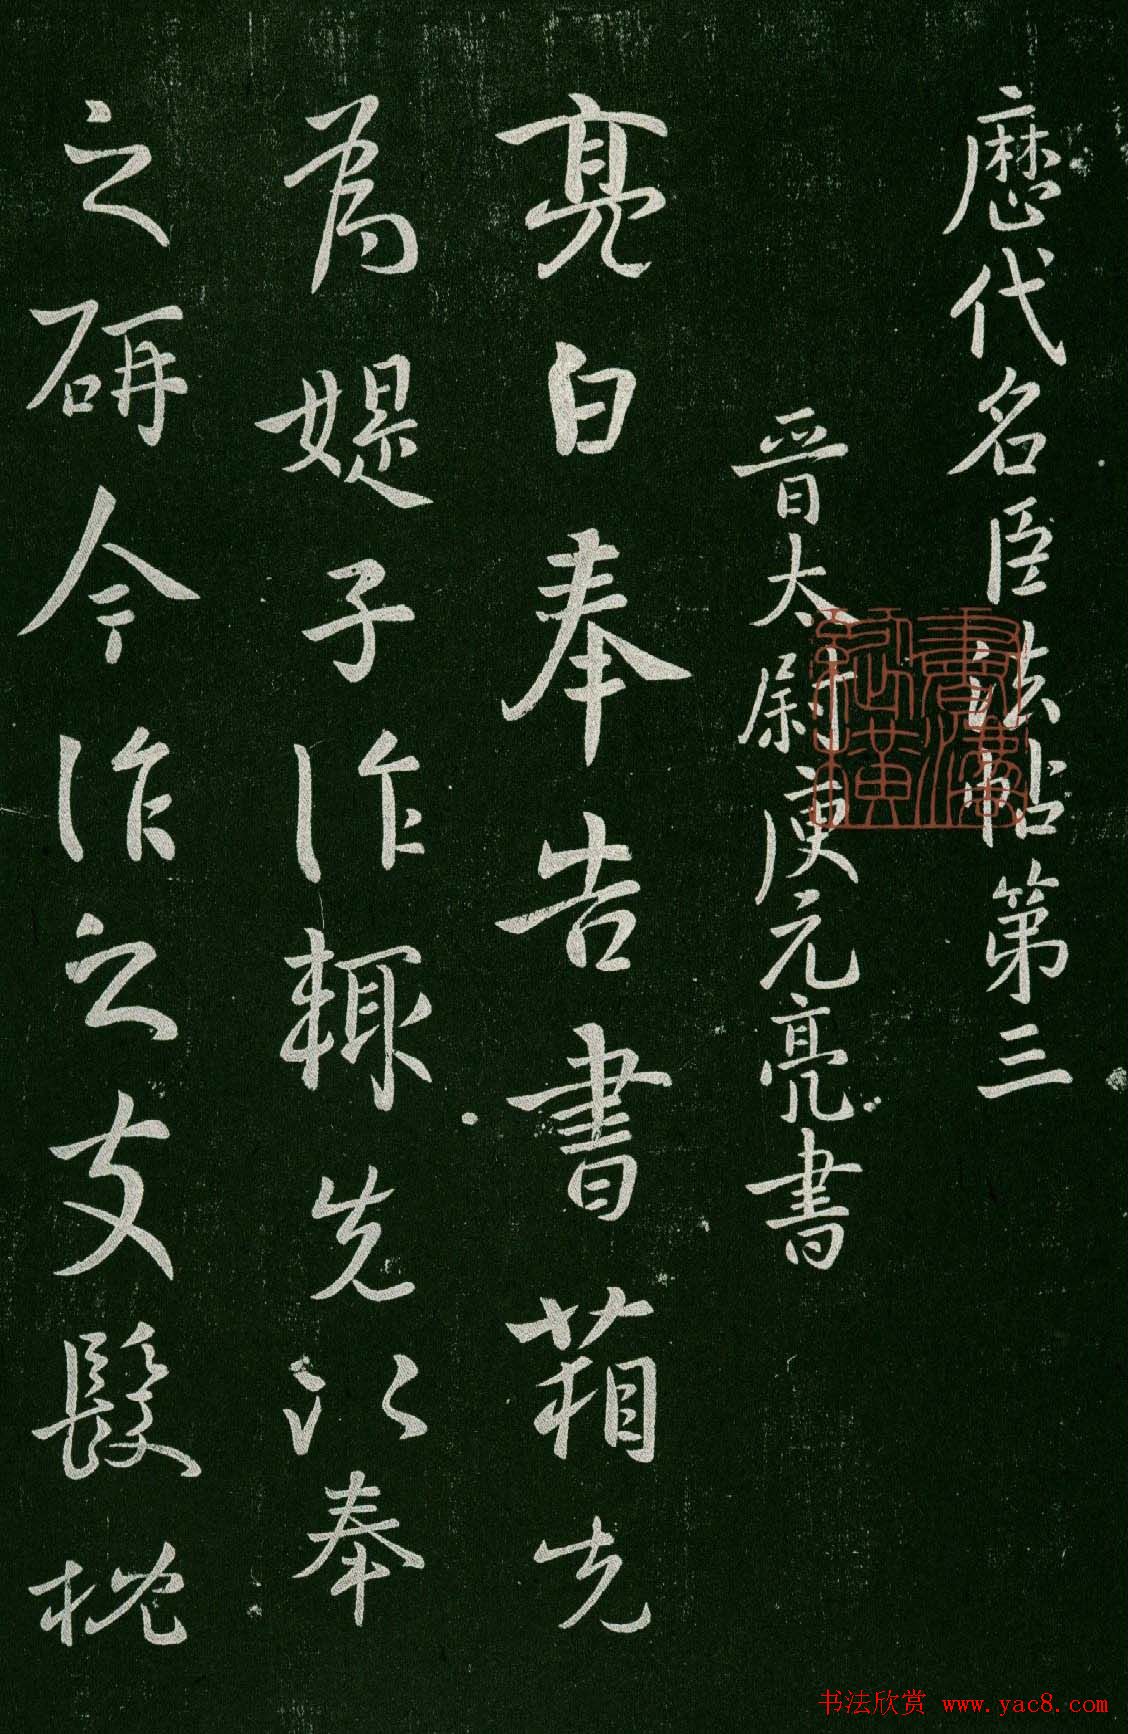 歷代名臣法帖第三
晉太尉庾元亮書
亮白奉告書箱先
為媞子作輒先以奉
之研今作之支髮枕
书法欣赏 www.yac8.com